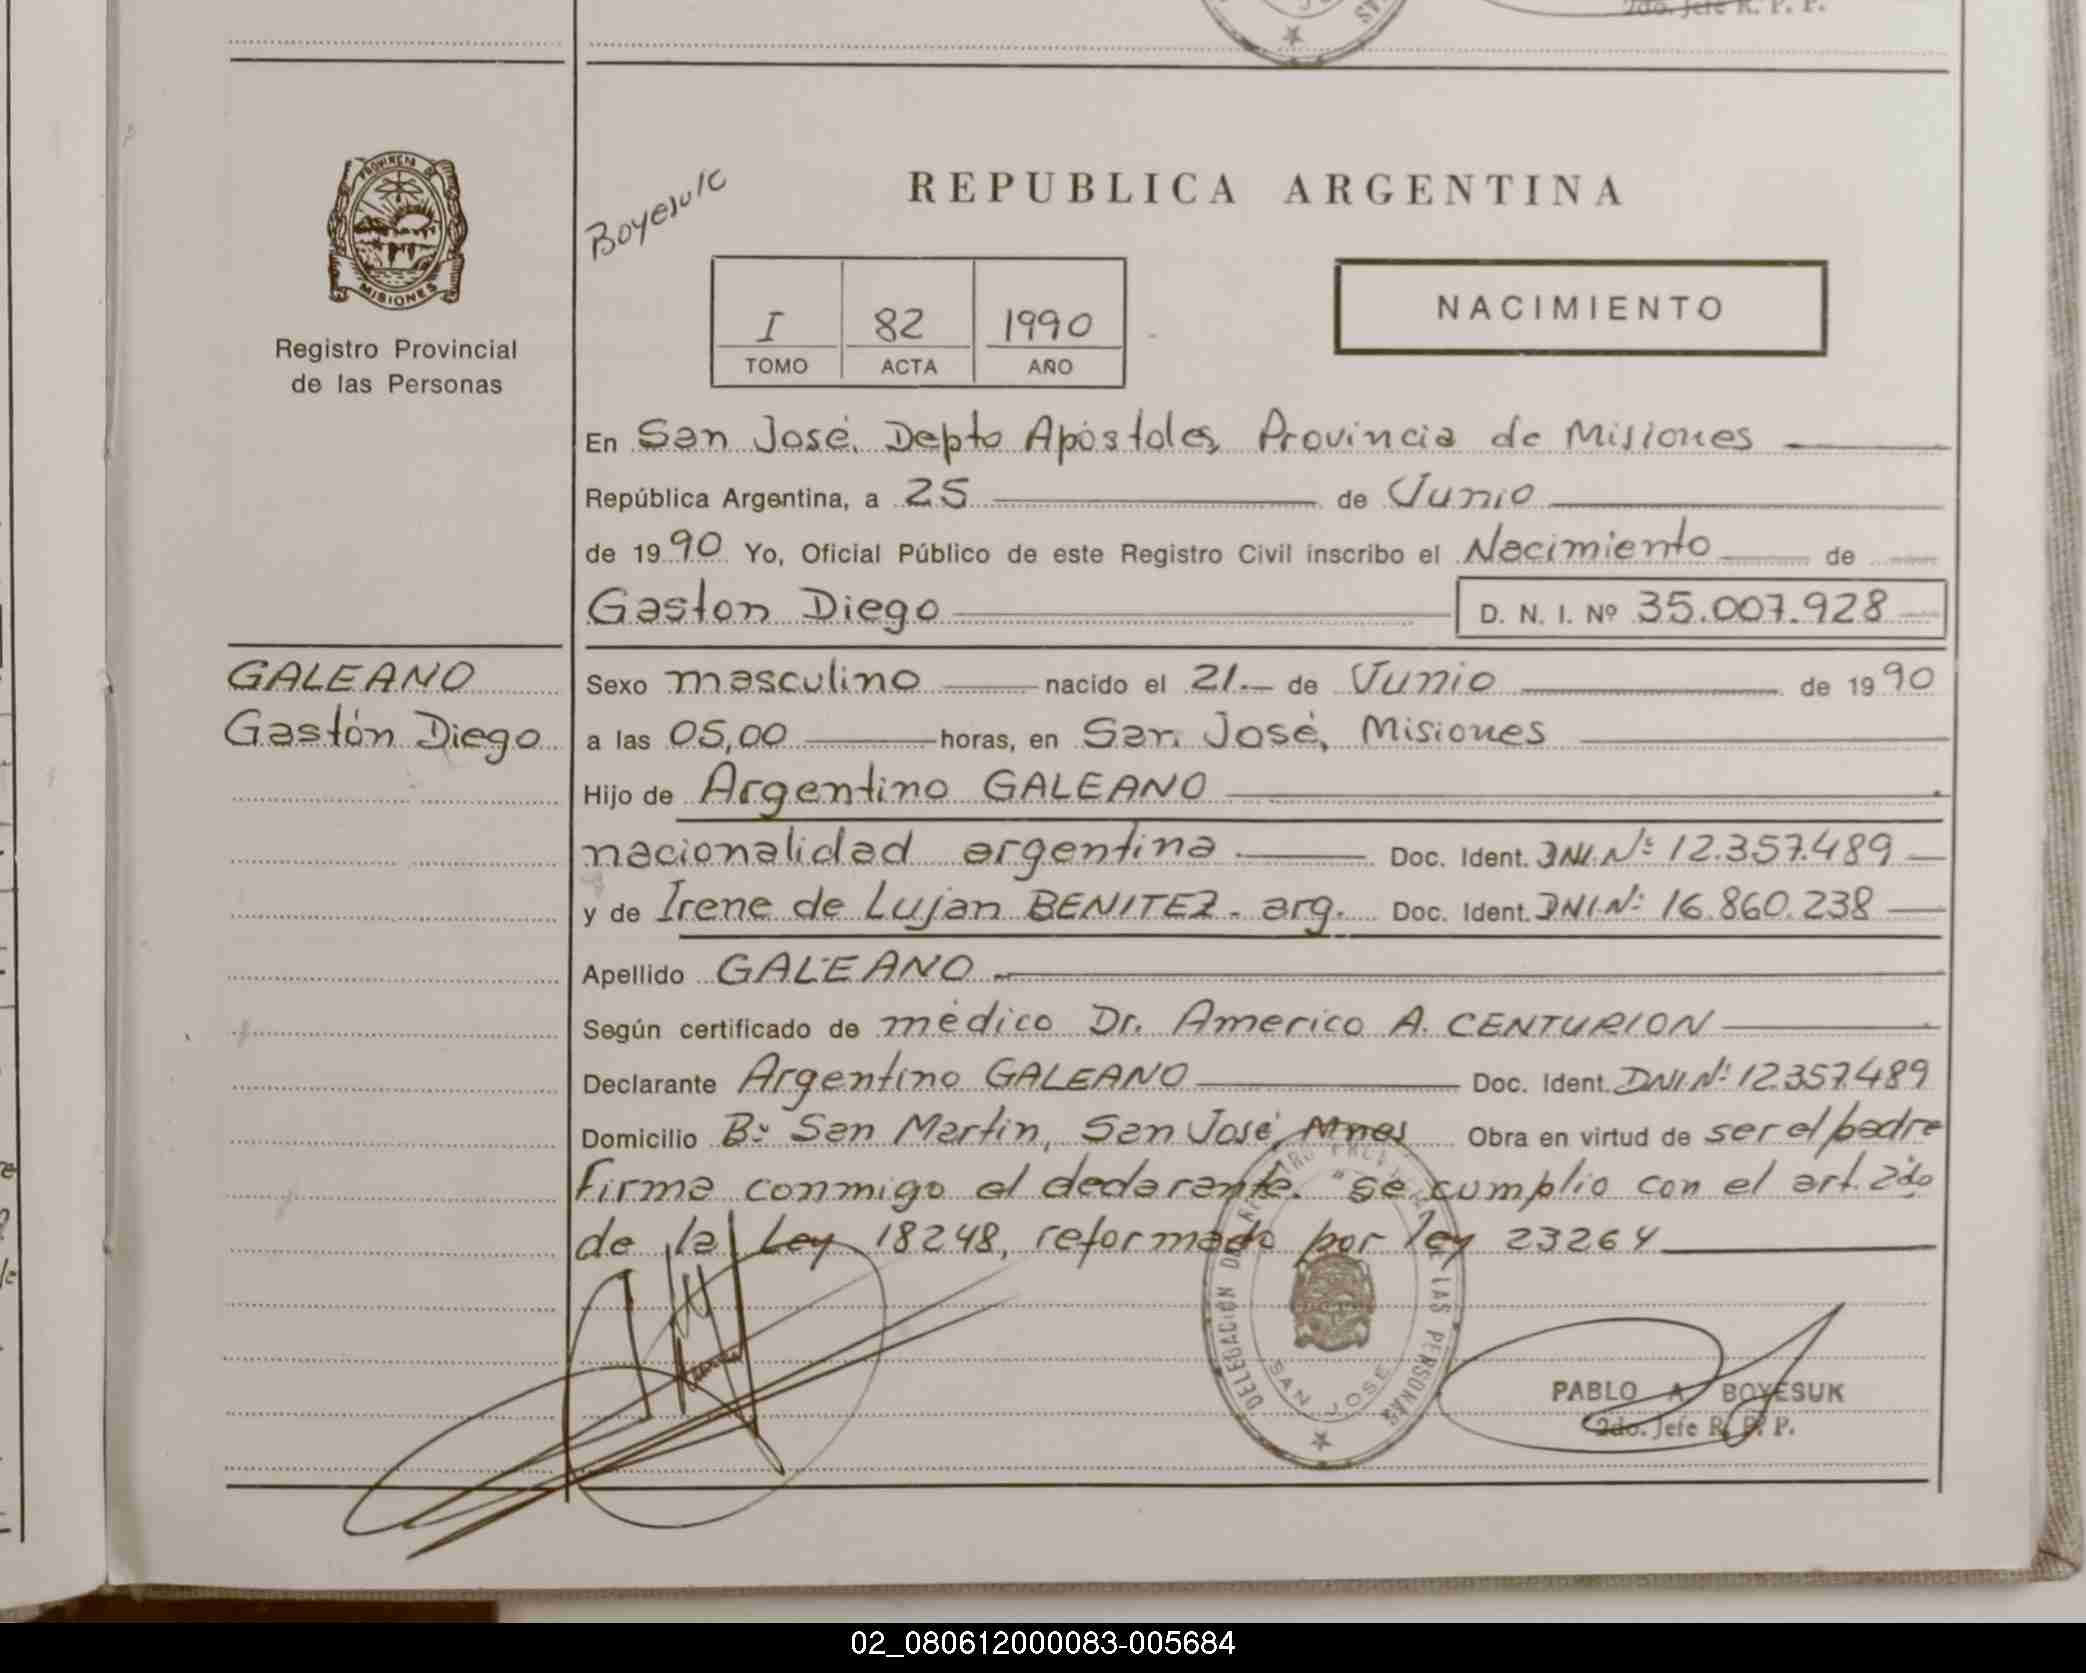 2do. Jefe R. P. P.
PROVINCIA DE
MISIONES
Registro Provincial
de las Personas
Boyesuk
REPUBLICA ARGENTINA
I 82 1990
TOMO ACTA AÑO
NACIMIENTO
En San José, Depto Apóstoles, Provincia de Misiones
República Argentina, a 25 de Junio
de 1990 Yo, Oficial Público de este Registro Civil inscribo el Nacimiento de
Gaston Diego D. N. I. Nº 35.007.928
GALEANO
Gastón Diego
Sexo masculino nacido el 21.- de Junio de 1990
a las 05,00 horas, en San José, Misiones
Hijo de Argentino GALEANO
nacionalidad argentina Doc. Ident. DNI.Nº 12.357.489
y de Irene de Lujan BENITEZ. arg. Doc. Ident. DNI Nº 16.860.238
Apellido GALEANO
Según certificado de médico Dr. Americo A. CENTURION
Declarante Argentino GALEANO Doc. Ident. DNI.Nº 12.357.489
Domicilio Bº San Martin, San José, Mnes Obra en virtud de ser el padre
Firma conmigo el declarante. "se cumplio con el art. 2do
de la Ley 18248, reformado por ley 23264
DELEGACION DEL REGISTRO PROVINCIAL DE LAS PERSONAS
SAN JOSE
PABLO A BOYESUK
2do. Jefe R. P. P.
02_080612000083-005684